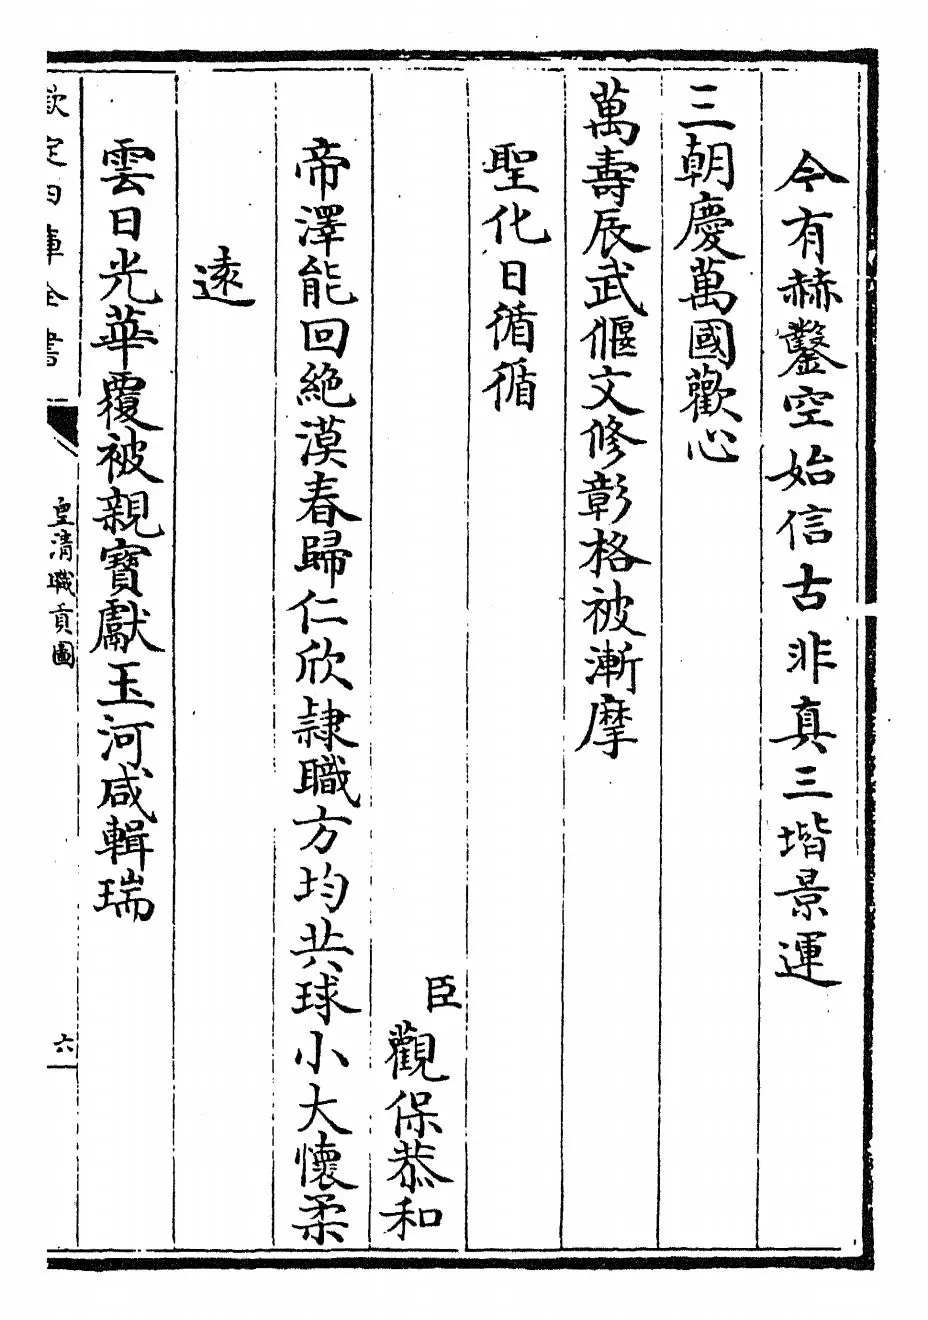 今有赫鑿空始信古非真三堦景運
三朝慶萬國歡心
萬壽辰武偃文修彰格被漸摩
聖化日循循
臣觀保恭和
帝澤能回絶漠春歸仁欣隷職方均共球小大懷柔
逺
雲日光華覆被親寶獻玉河咸輯瑞
欽定四庫全書
皇清職貢圖
六